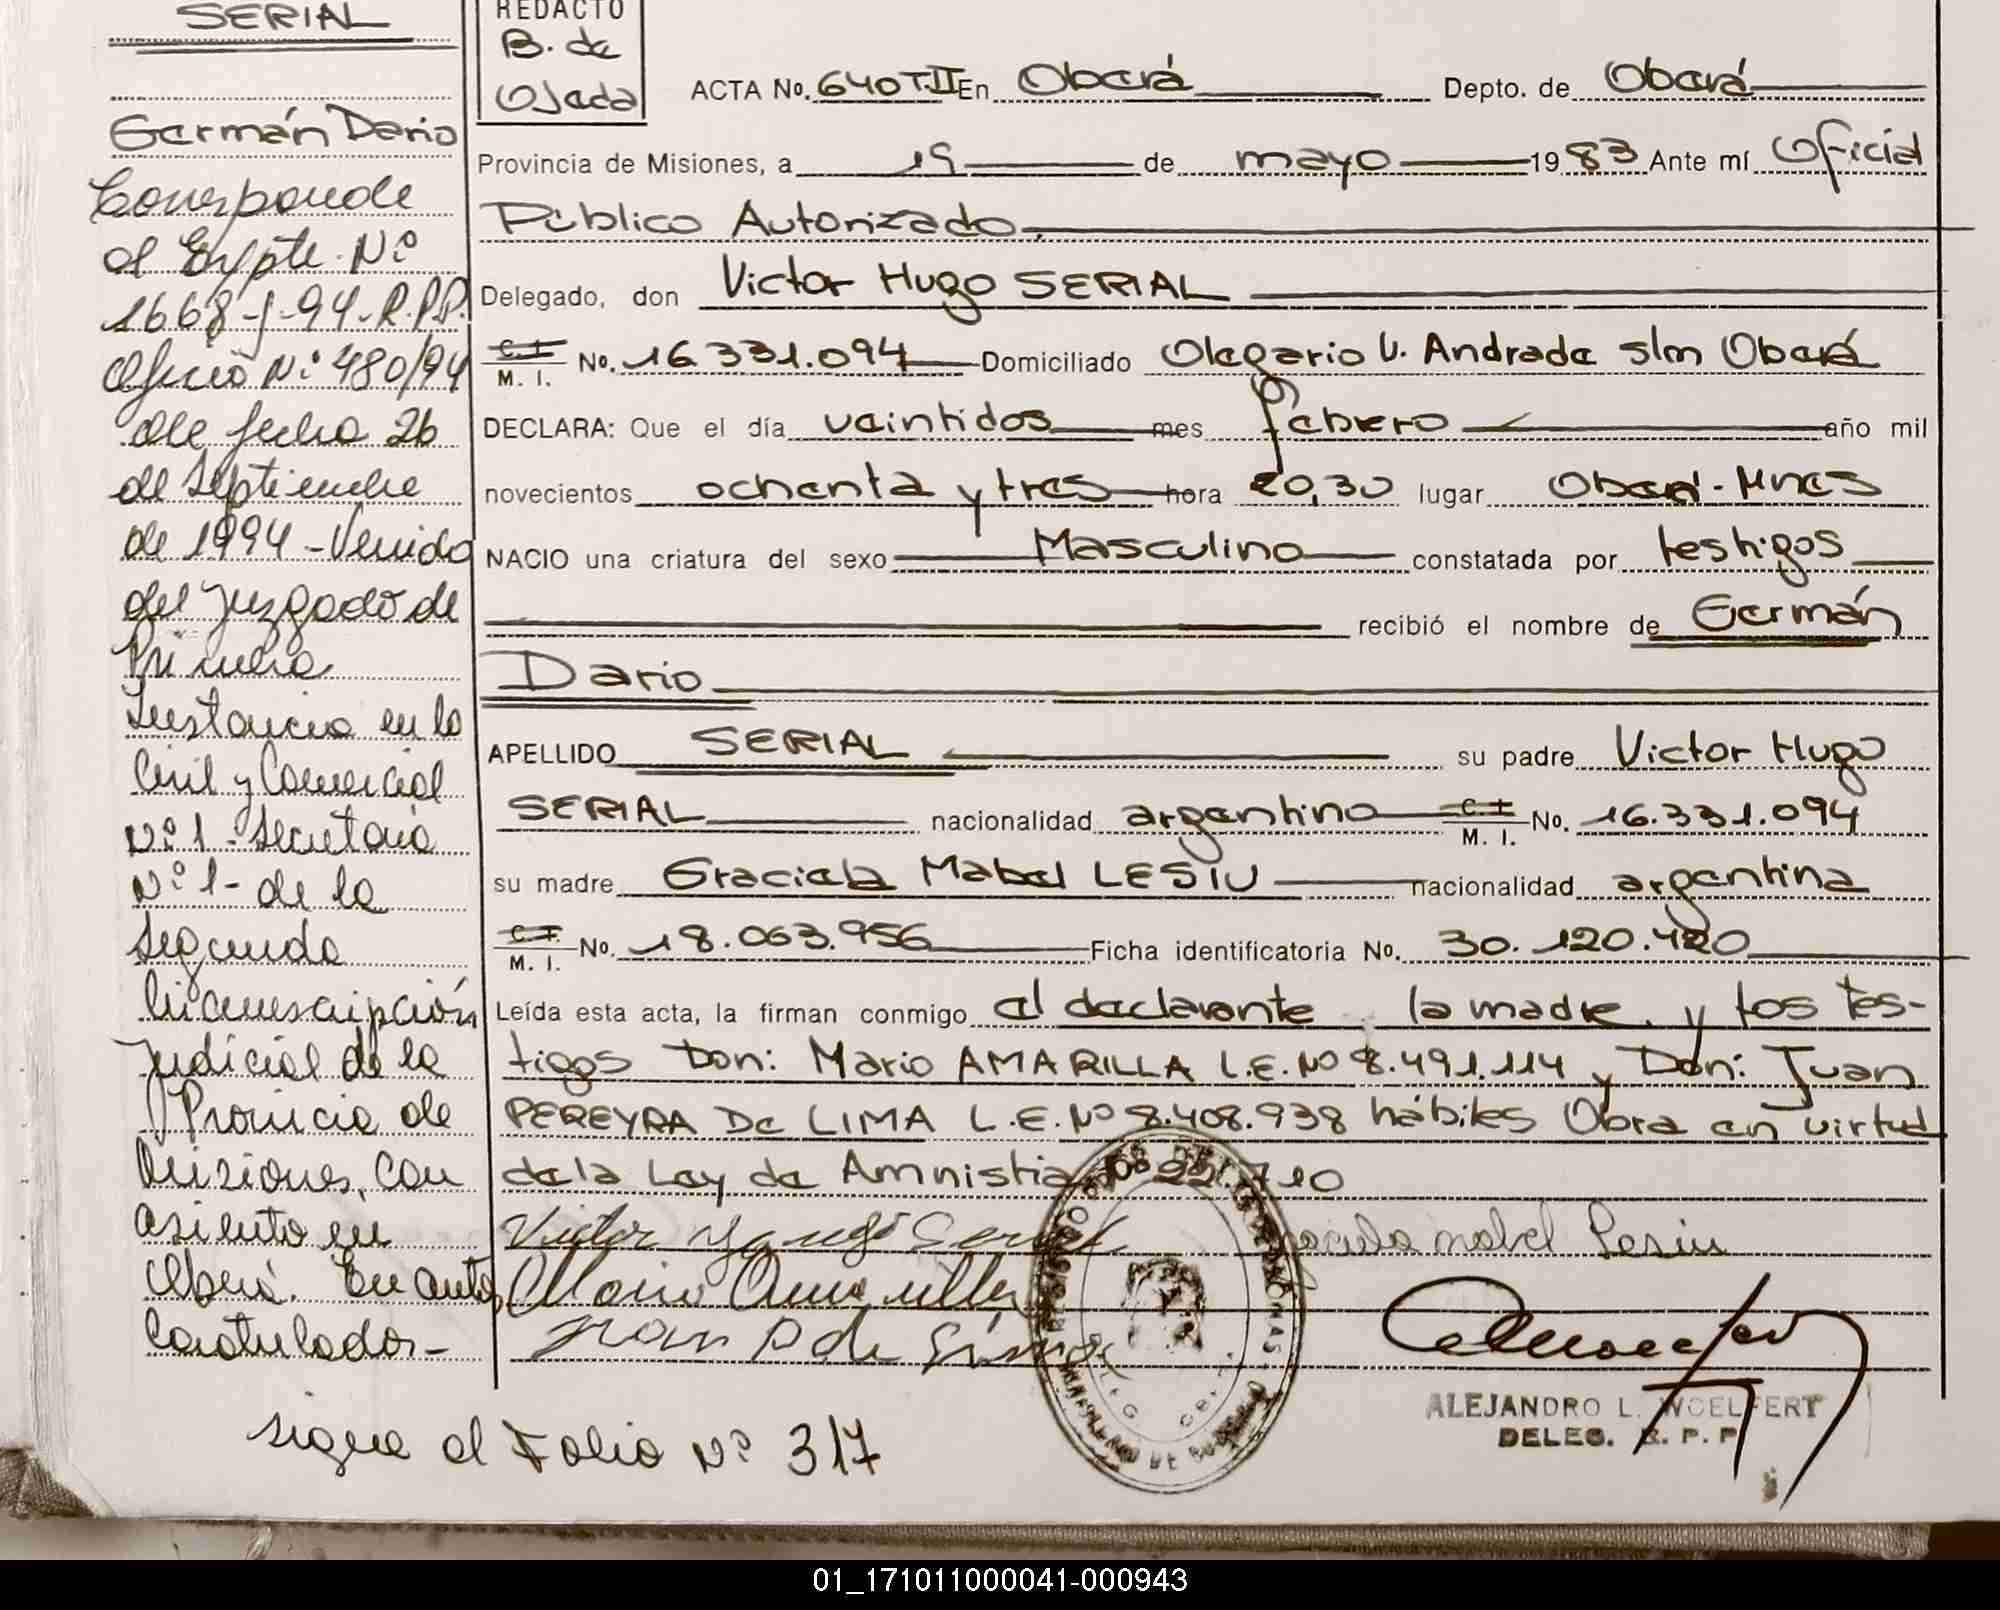 SERIAL
Germán Dario
Corresponde
al Expte. Nº
1668-J-94-R.P.P.
Oficio Nº 480/94
de fecha 26
de Septiembre
de 1994 - Venido
del Juzgado de
Primera
Instancia en lo
Civil y Comercial
Nº 1 - Secretaria
Nº 1 - de la
Segunda
Circunscripción
Judicial de la
Provincia de
Misiones, con
asiento en
Oberá. En autos
Caratulados -
sigue al Folio Nº 317
REDACTO
B. de
Ojeda
ACTA No. 640 T.II En Oberá Depto. de Oberá
Provincia de Misiones, a 19 de mayo 1983 Ante mí Oficial
Público Autorizado
Delegado, don Victor Hugo SERIAL
C. I. M. I. No. 16.331.094 Domiciliado Olegario V. Andrade s/n Oberá
DECLARA: Que el día veintidos mes febrero año mil
novecientos ochenta y tres hora 20,30 lugar Oberá - Mnes
NACIO una criatura del sexo Masculino constatada por testigos
recibió el nombre de Germán
Dario
APELLIDO SERIAL su padre Victor Hugo
SERIAL nacionalidad argentino C. I. M. I. No. 16.331.094
su madre Graciela Mabel LESIU nacionalidad argentina
C. I. M. I. No. 18.063.956 Ficha identificatoria No. 30.120.420
Leída esta acta, la firman conmigo el declarante, la madre, y los tes-
tigos Don: Mario AMARILLA L.E. Nº 8.491.114 y Don: Juan
PEREYRA De LIMA L.E. Nº 8.408.938 hábiles Obra en virtud
de la Ley de Amnistia Nº 22.710
Victor Hugo Serial Graciela Mabel Lesiu
Mario Amarilla
Juan P de Lima
ALEJANDRO L. WOELFERT
DELEG. R. P. P.
01_171011000041-000943